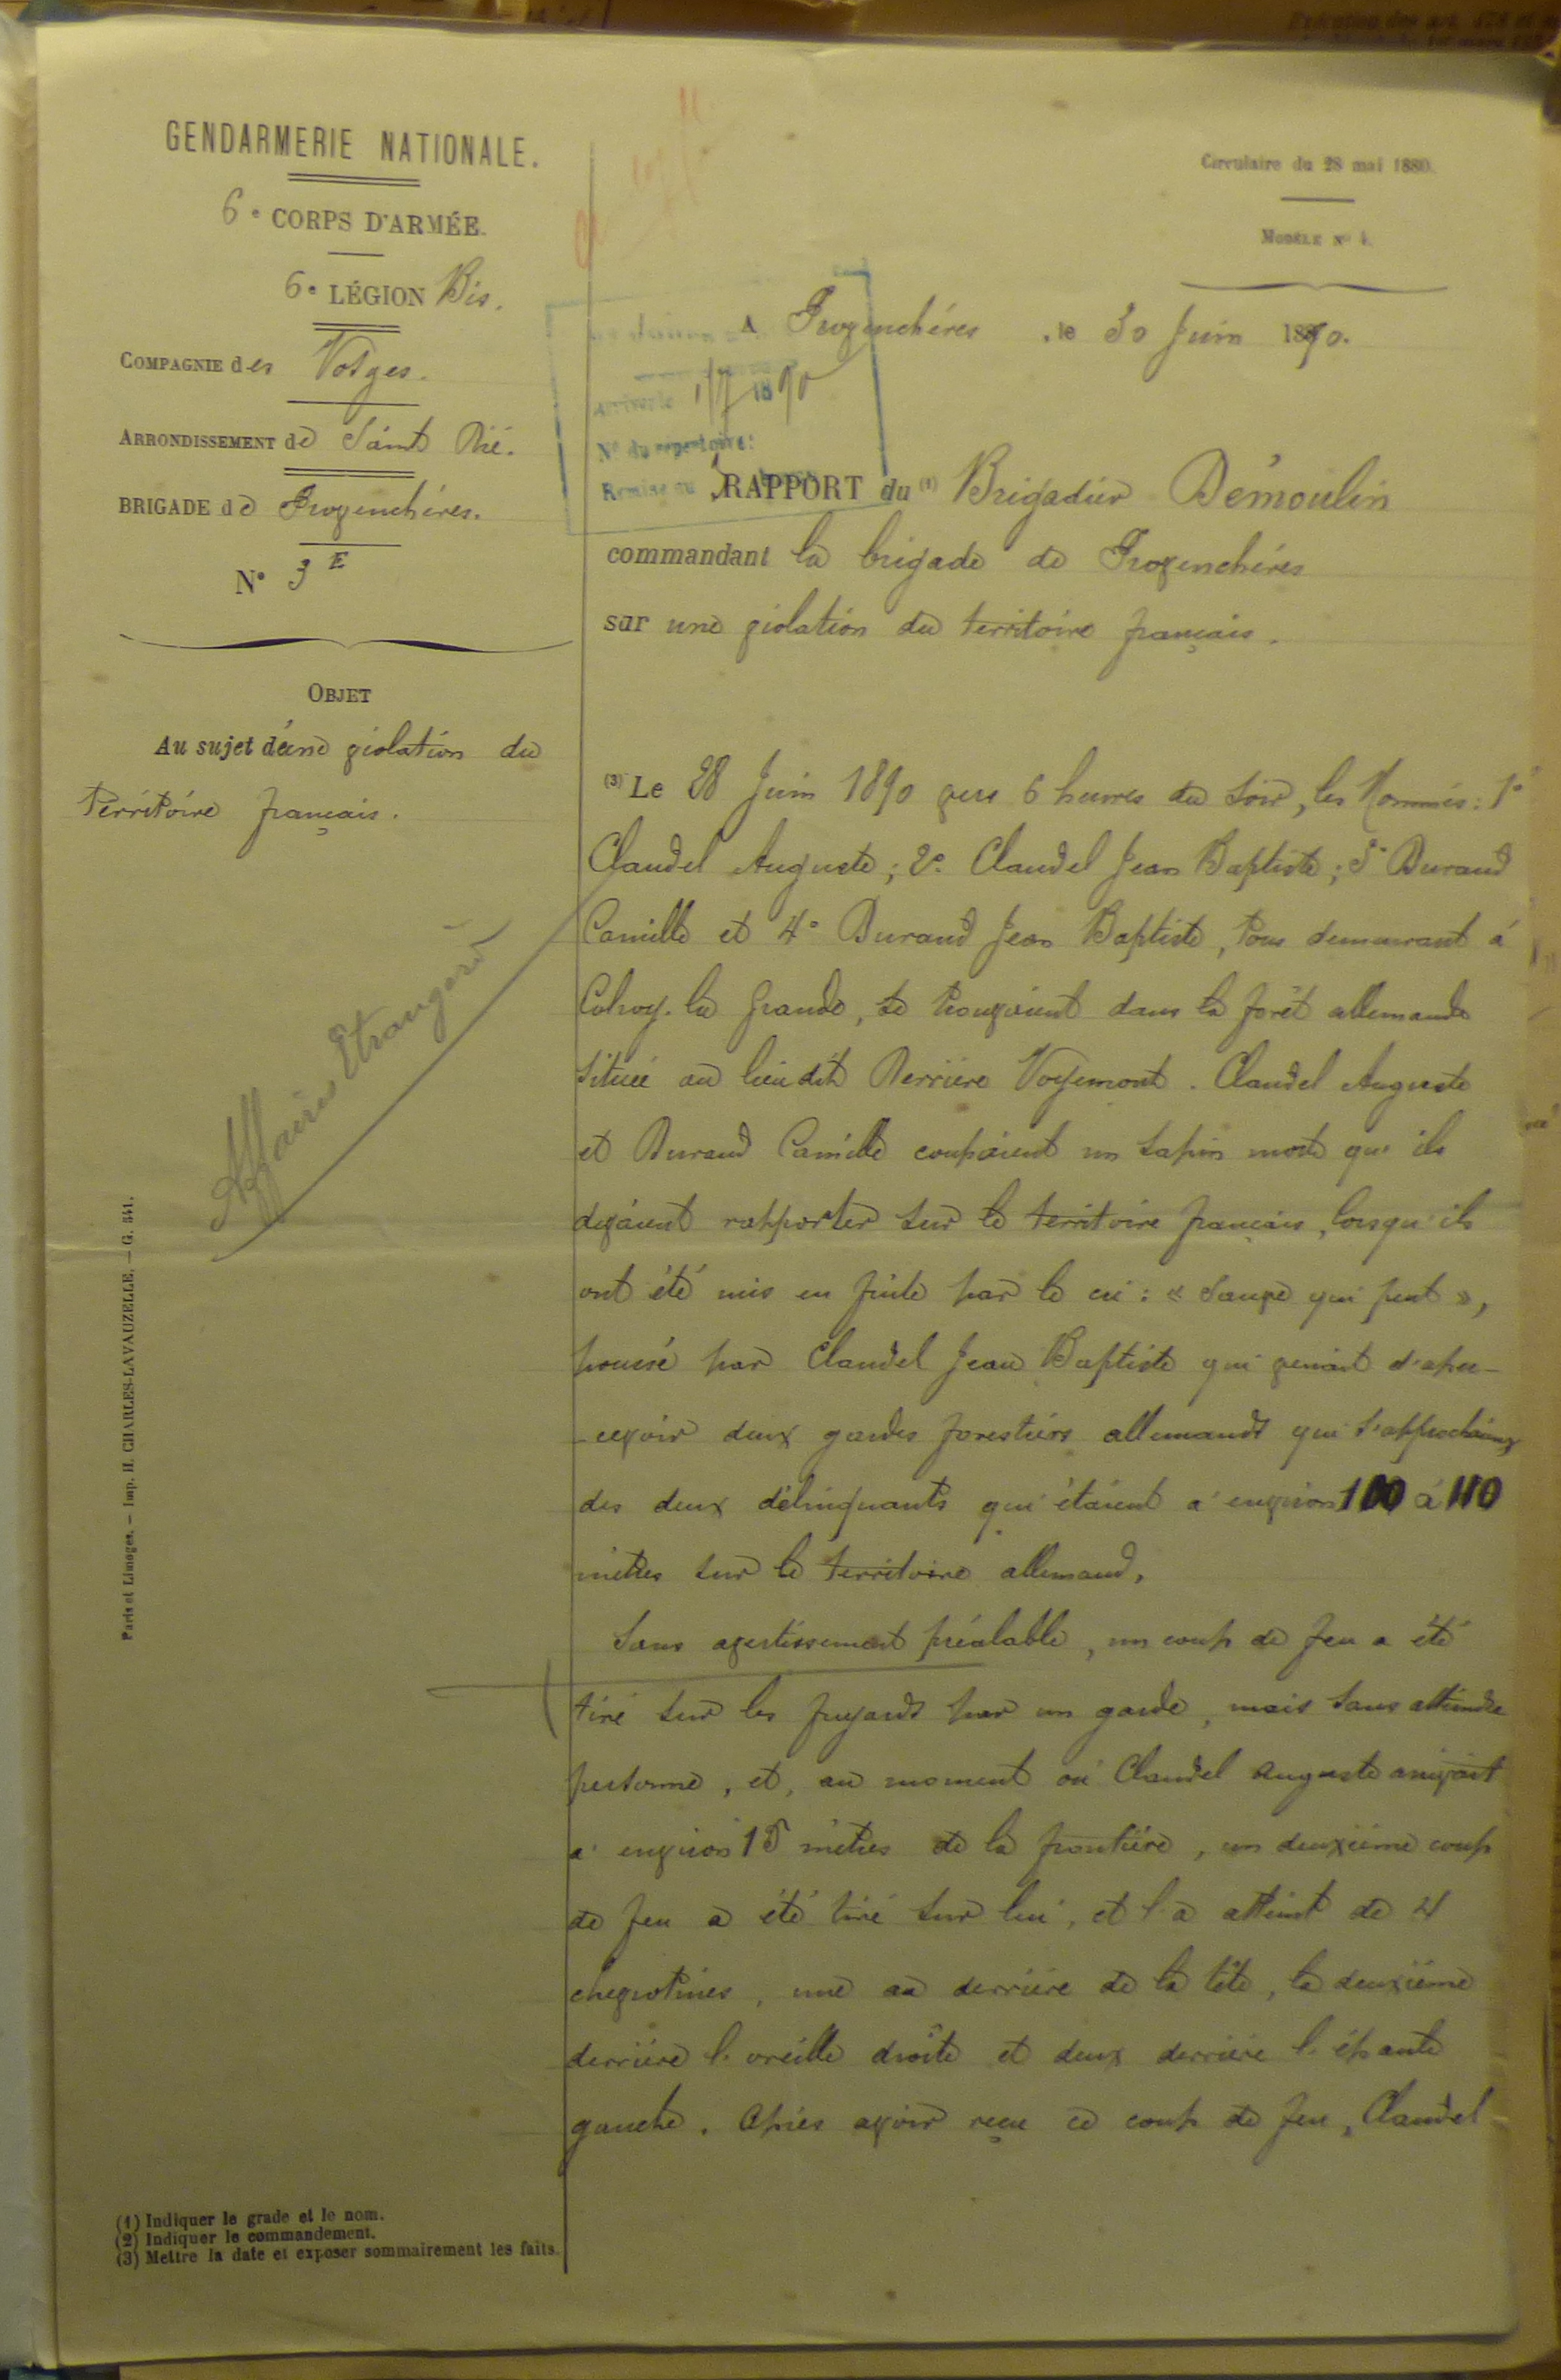 GENDARMERIE NATIONALE.
6e CORPS D'ARMÉE.
6e LÉGION Bis.
COMPAGNIE des Vosges.
ARRONDISSEMENT de Saint Dié.
BRIGADE de Provenchères.
N° 3 E
OBJET
Au sujet d'une violation du
Territoire français.
Affaires Etrangères
Paris et Limoges. — Imp. H. CHARLES-LAVAUZELLE. — G. 341.
(1) Indiquer le grade et le nom.
(2) Indiquer le commandement.
(3) Mettre la date et exposer sommairement les faits.
Circulaire du 28 mai 1880.
MODÈLE N° 4.
A Provenchères, le 30 Juin 1890.
Arrivée le 1/7 1890
N° du répertoire:
Remise au
RAPPORT du (1) Brigadier Démoulin
commandant la brigade de Provenchères
sur une violation du territoire français.
(3) Le 28 Juin 1890 vers 6 heures du soir, les Nommés: 1°
Claudel Auguste; 2° Claudel Jean Baptiste; 3° Durand
Camille et 4° Durand Jean Baptiste, tous demeurant à
Colroy-la Grande, se trouvaient dans la forêt allemande
située au lieu dit Derrière Voyemont. Claudel Auguste
et Durand Camille coupaient un sapin morte qu'ils
devaient rapporter sur le territoire français, lorsqu'ils
ont été mis en fuite par le cri: « Sauve qui peut »,
poussé par Claudel Jean Baptiste qui venait d'aper-
-cevoir deux gardes forestiers allemands qui s'approchaient
des deux délinquants qui étaient à environ 100 à 110
mètres sur le territoire allemand.
Sans avertissement préalable, un coup de feu a été
tiré sur les fuyards par un garde, mais sans atteindre
personne, et, au moment où Claudel Auguste arrivait
à environ 15 mètres de la frontière, un deuxième coup
de feu a été tiré sur lui, et l'a atteint de 4
chevrotines, une au derrière de la tête, la deuxième
derrière l'oreille droite et deux derrière l'épaule
gauche. Après avoir reçu ce coup de feu, Claudel